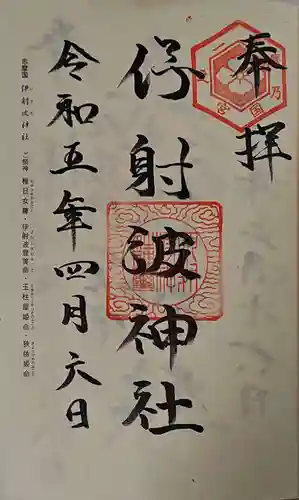 奉拝
伊射波神社
令和五年四月六日
志摩国 伊射波神社 ご祭神 稚日女尊・伊射波登美命・玉柱屋姫命・狭依姫命